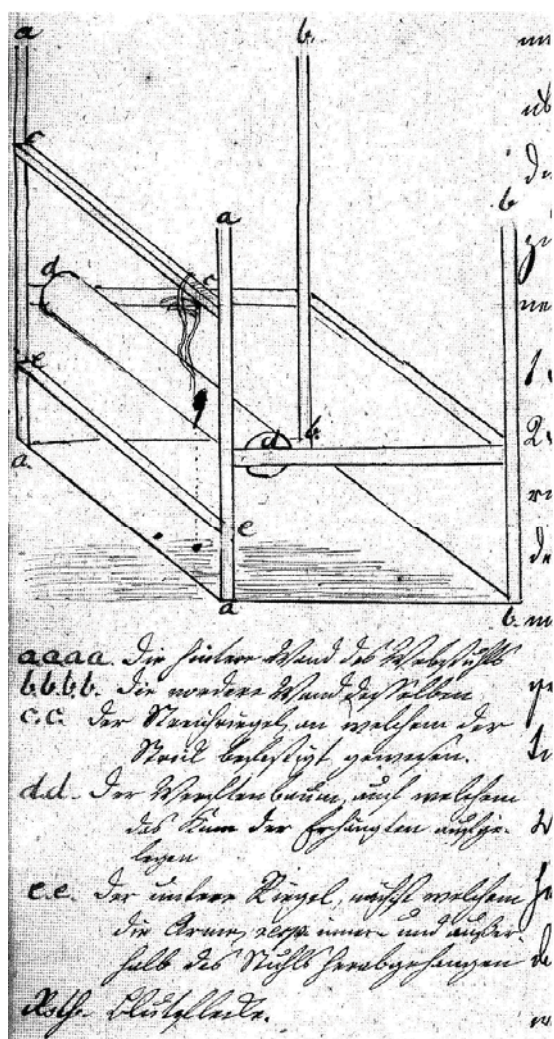 a
b.
c
a
b
d
c
e
d
b.
a.
e
a
b.
a a a a. Die hintere Wand des Webstuhls
b. b. b. b. die vordere Wand desselben
c. c. der Streichriegel, an welchem der
Strick befestigt gewesen.
d. d. Der Werftenbaum, auf welchem
das Kinn der Erhängten aufge-
legen
e. e. der untere Riegel, nächst welchem
die Arme, resp. inner- und außer-
halb des Stuhls herabgehangen
Roth. Blutflecke.